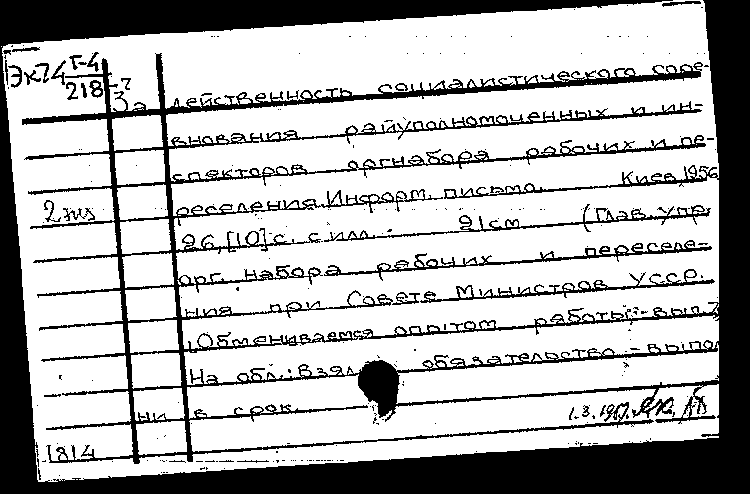 Эк74 Г-4
218-2
3
За действенность социалистического соре-
внования райуполномоченных и ин-
спекторов оргнабора рабочих и пе-
2 экз реселения. Информ. письмо. Киев, 1956
26,[10]с. с илл. 21см (Глав. упр.
орг. набора рабочих и переселе-
ния при Совете Министров УССР.
Обмениваемся опытом работы - вып.
На обл.: Взял обязательство - выпол
ни в срок.
1.3.
1814